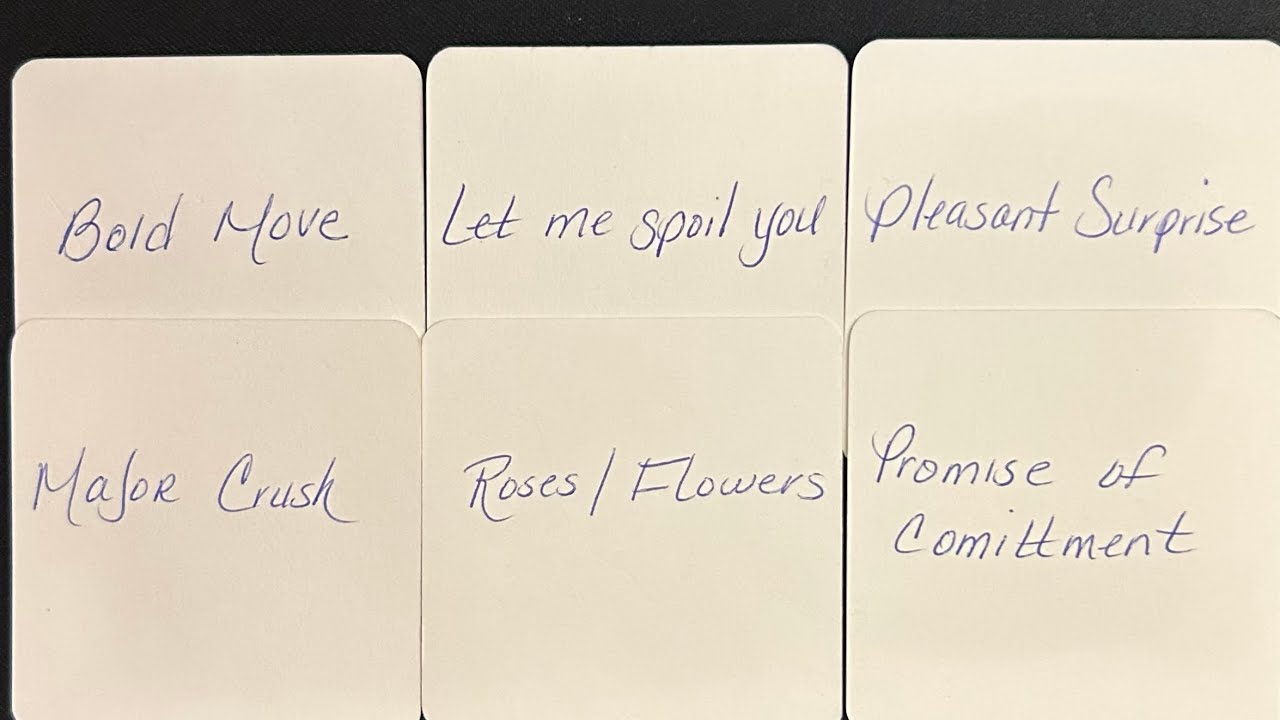 Bold Move
Let me spoil you
Pleasant Surprise
Major Crush
Roses / Flowers
Promise of
Comittment